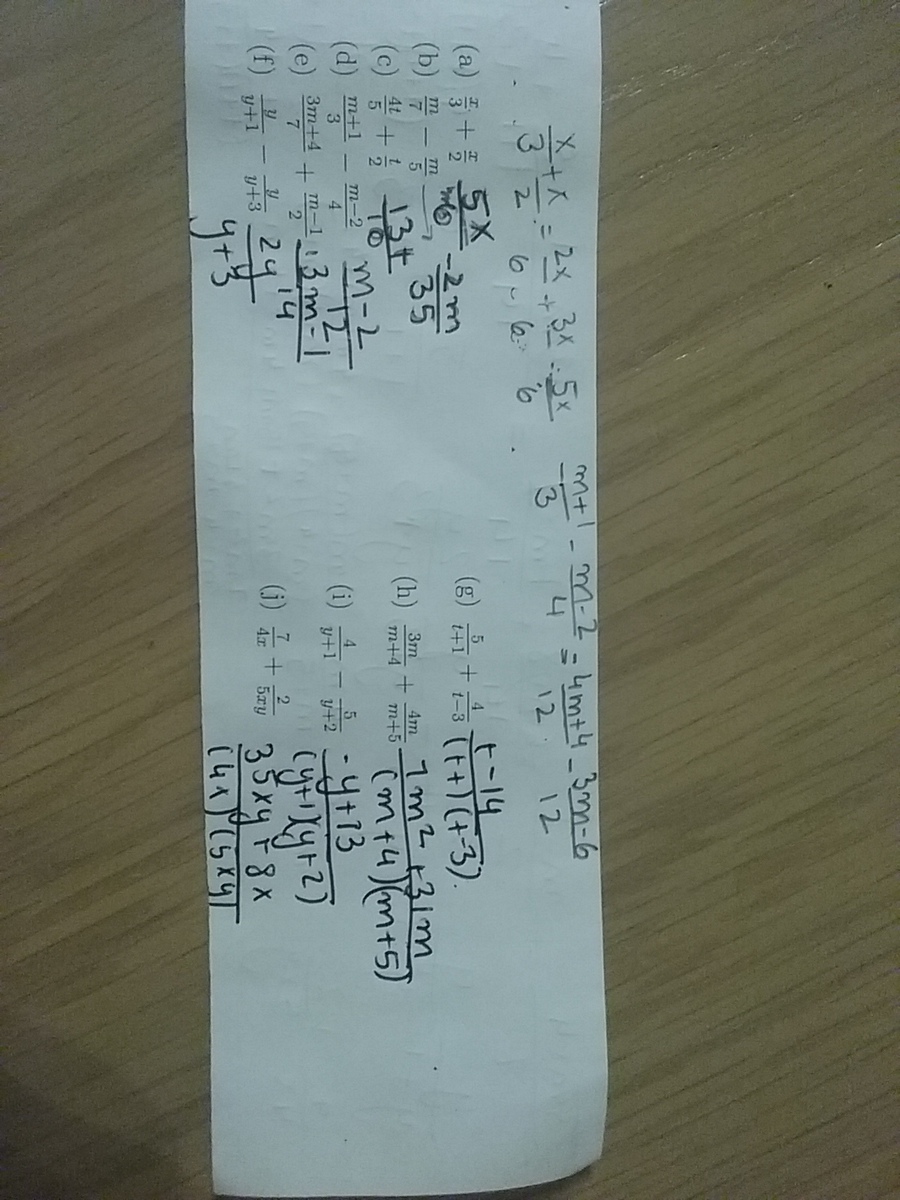 x/3 + x/2 = 2x/6 + 3x/6 = 5x/6
m+1/3 - m-2/4 = 4m+4/12 - 3m-6/12
(a) x/3 + x/2 5x/6
(b) m/7 - m/5 -2m/35
(c) 4t/5 + t/2 13t/10
(d) m+1/3 - m-2/4 m-2/12
(e) 3m+4/7 + m-1/2 13m-1/14
(f) y/y+1 - y/y+3 2y/y+3
(g) 5/t+1 + 4/t-3 t-14/(t+1)(t-3)
(h) 3m/m+4 + 4m/m+5 7m²+31m/(m+4)(m+5)
(i) 4/y+1 - 5/y+2 -y+13/(y+1)(y+2)
(j) 7/4x + 2/5xy 35xy+8x/(4x)(5xy)